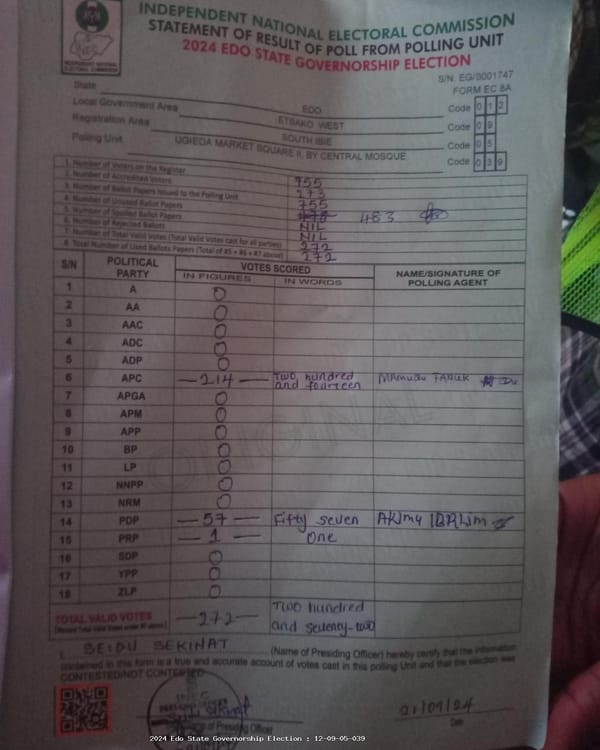 INDEPENDENT NATIONAL ELECTORAL COMMISSION
STATEMENT OF RESULT OF POLL FROM POLLING UNIT
2024 EDO STATE GOVERNORSHIP ELECTION
S/N. EG/0001747
FORM EC 8A
State EDO Code 012
Local Government Area ETSAKO WEST Code 09
Registration Area SOUTH IBIE Code 05
Polling Unit UGIEDA MARKET SQUARE II, BY CENTRAL MOSQUE Code 039
1. Number of Voters on the Register 755
2. Number of Accredited Voters 273
3. Number of Ballot Papers Issued to the Polling Unit 755
4. Number of Unused Ballot Papers 483
5. Number of Spoiled Ballot Papers NIL
6. Number of Rejected Ballots NIL
7. Number of Total Valid Votes (Total Valid Votes cast for all parties) 272
8. Total Number of Used Ballots Papers (Total of #5 + #6 + #7 above) 272
S/N POLITICAL PARTY VOTES SCORED NAME/SIGNATURE OF POLLING AGENT
IN FIGURES IN WORDS
1 A 0
2 AA 0
3 AAC 0
4 ADC 0
5 ADP 0
6 APC 214 Two hundred and fourteen
7 APGA 0
8 APM 0
9 APP 0
10 BP 0
11 LP 0
12 NNPP 0
13 NRM 0
14 PDP 57 Fifty seven
15 PRP 1 One
16 SDP 0
17 YPP 0
18 ZLP 0
TOTAL VALID VOTES 272 Two hundred and seventy-two
ORIGINAL
I, SEIDU SEKINAT (Name of Presiding Officer) hereby certify that the information
contained in this form is a true and accurate account of votes cast in this polling Unit and that the election was
CONTESTED/NOT CONTESTED
of Presiding Officer
21/09/24
Date
2024 Edo State Governorship Election : 12-09-05-039